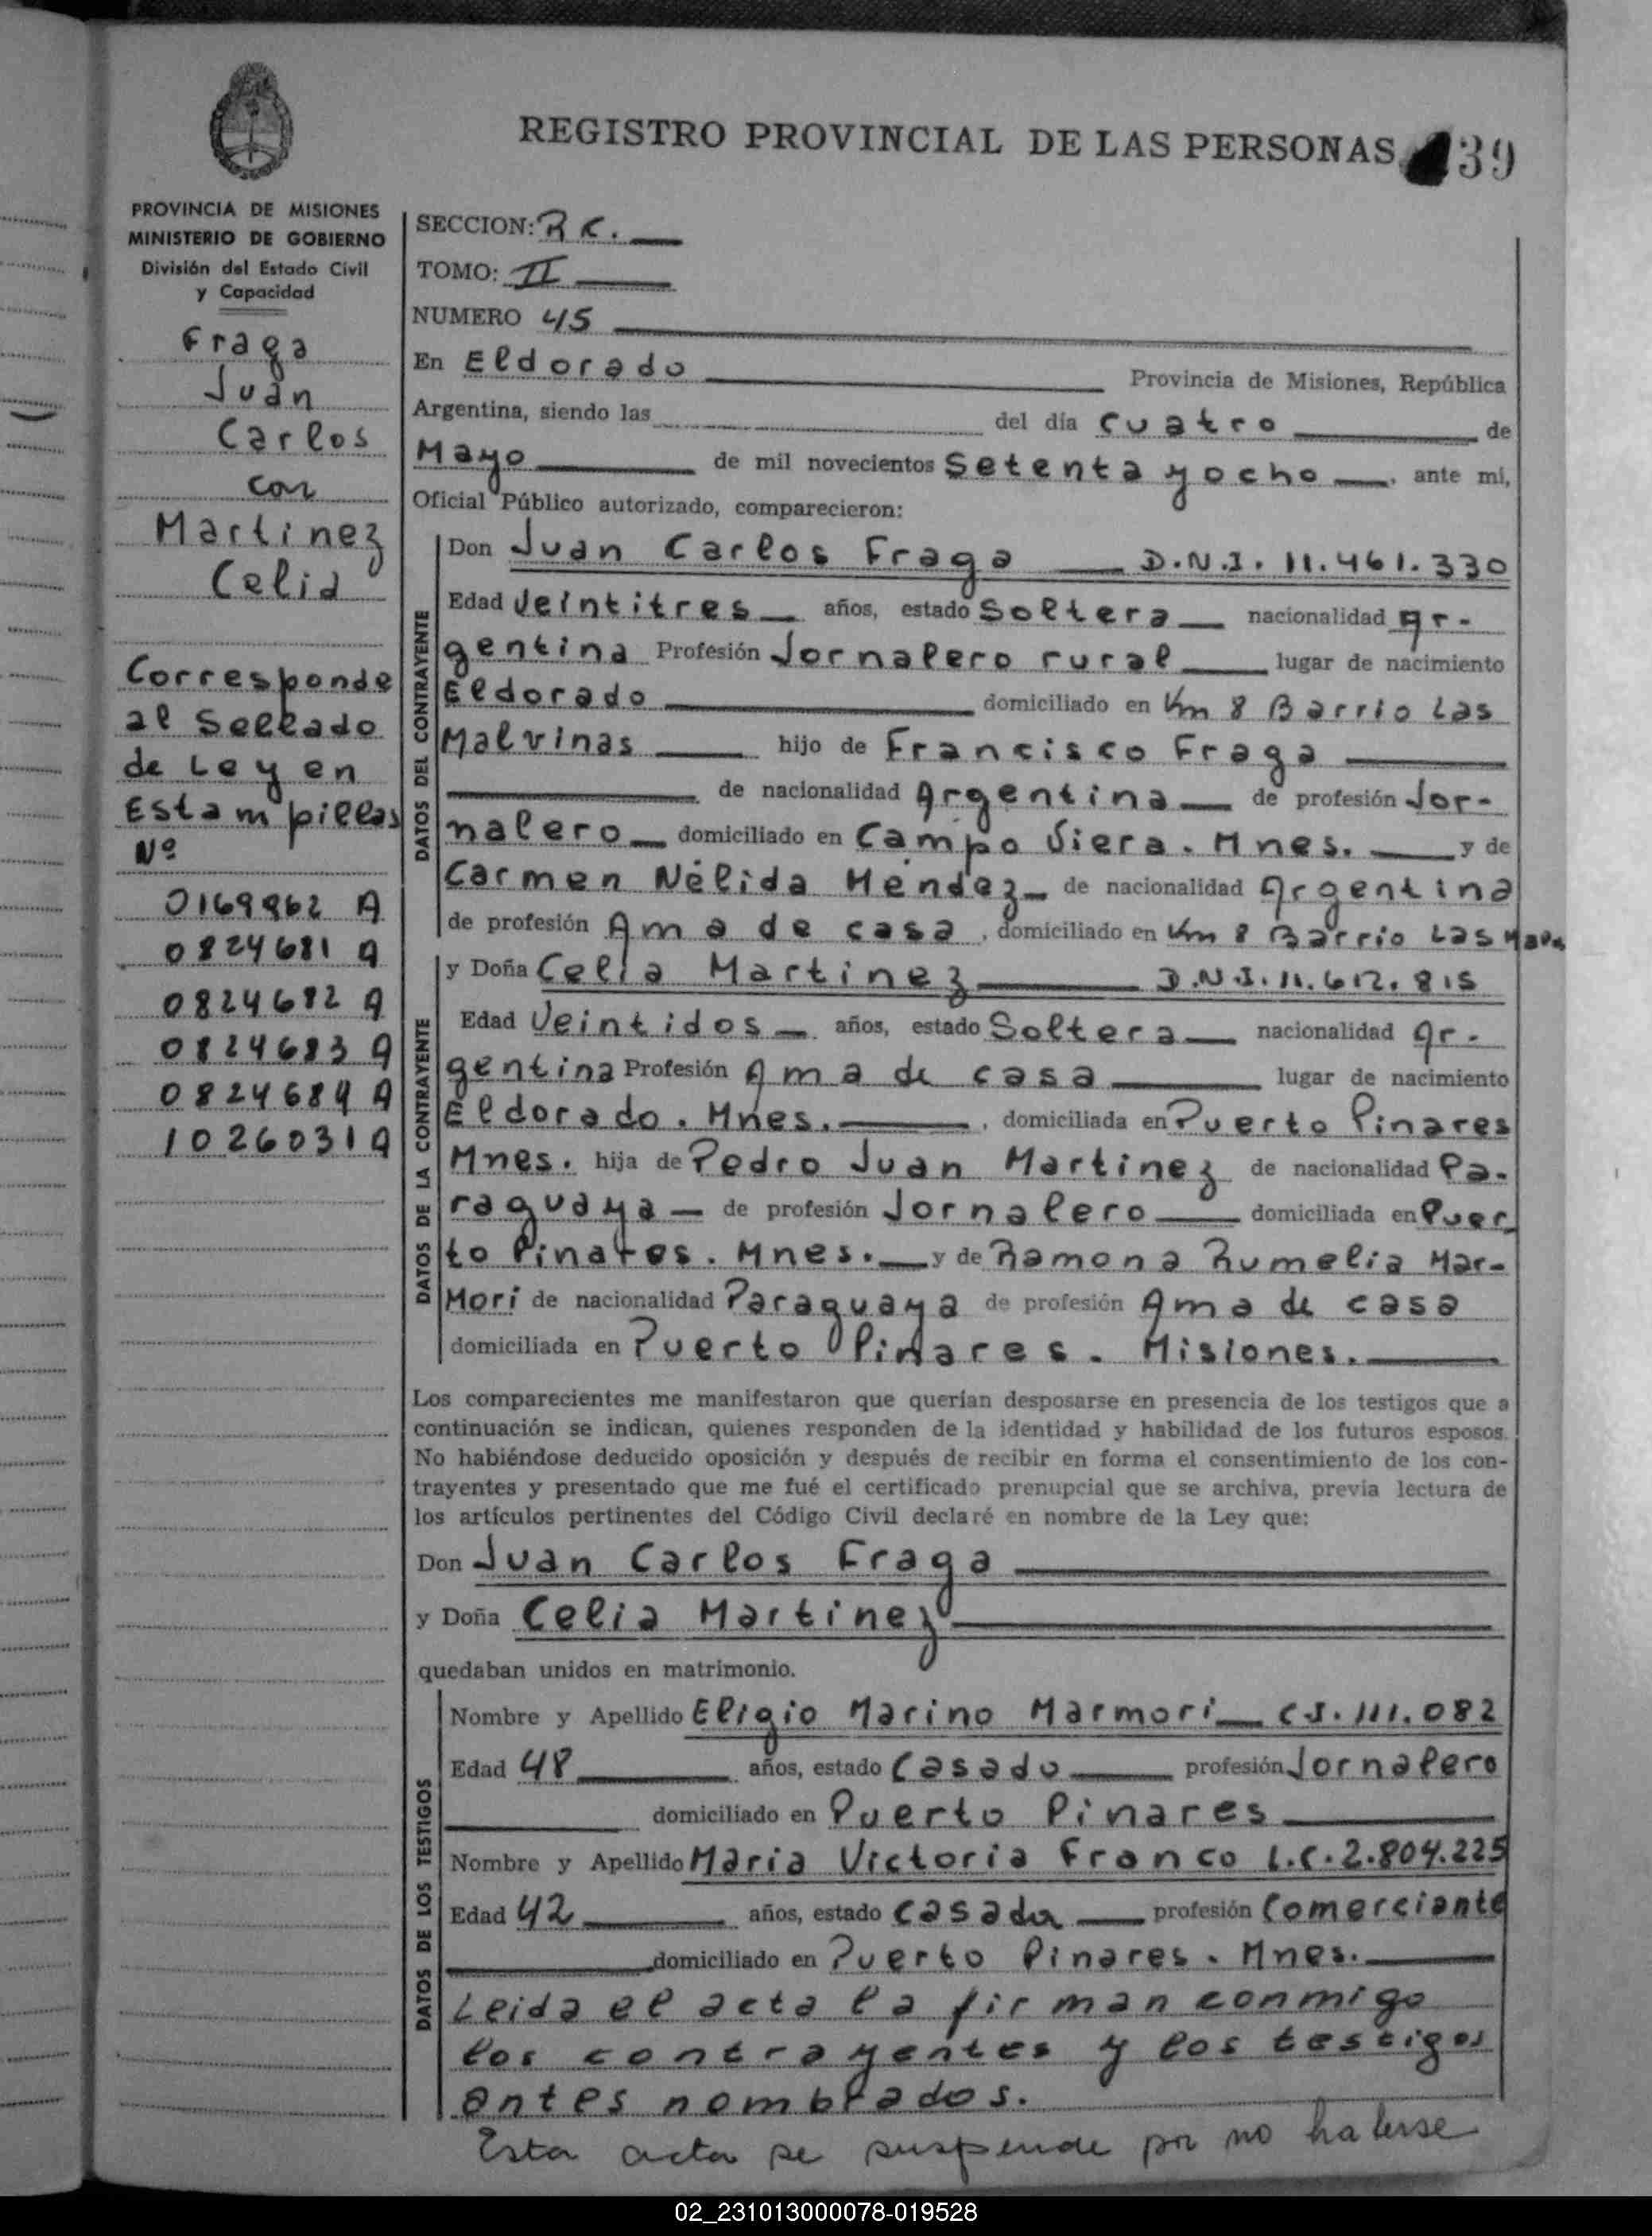 REGISTRO PROVINCIAL DE LAS PERSONAS
39
PROVINCIA DE MISIONES
MINISTERIO DE GOBIERNO
División del Estado Civil
y Capacidad
Fraga
Juan
Carlos
con
Martinez
Celia
Corresponde
al Sellado
de Ley en
Estampillas
Nº
0169962 A
0824681 A
0824682 A
0824683 A
0824684 A
1026031 A
SECCION: R C.
TOMO: II
NUMERO 45
En Eldorado Provincia de Misiones, República
Argentina, siendo las del día cuatro de
Mayo de mil novecientos Setenta y ocho, ante mí,
Oficial Público autorizado, comparecieron:
DATOS DEL CONTRAYENTE
Don Juan Carlos Fraga D.N.I. 11.461.330
Edad Veintitres años, estado Soltera nacionalidad Ar-
gentina Profesión Jornalero rural lugar de nacimiento
Eldorado domiciliado en Km 8 Barrio Las
Malvinas hijo de Francisco Fraga
de nacionalidad Argentina de profesión Jor-
nalero domiciliado en Campo Viera. Mnes. y de
Carmen Nélida Méndez de nacionalidad Argentina
de profesión Ama de casa, domiciliado en Km 8 Barrio Las
DATOS DE LA CONTRAYENTE
y Doña Celia Martinez D.N.I. 11.612.815
Edad Veintidos años, estado Soltera nacionalidad Ar-
gentina Profesión Ama de casa lugar de nacimiento
Eldorado. Mnes., domiciliada en Puerto Pinares
Mnes. hija de Pedro Juan Martinez de nacionalidad Pa-
raguaya de profesión Jornalero domiciliada en Puer
to Pinares. Mnes. y de Ramona Rumelia Mar-
Mori de nacionalidad Paraguaya de profesión Ama de casa
domiciliada en Puerto Pinares. Misiones.
Los comparecientes me manifestaron que querían desposarse en presencia de los testigos que a
continuación se indican, quienes responden de la identidad y habilidad de los futuros esposos.
No habiéndose deducido oposición y después de recibir en forma el consentimiento de los con-
trayentes y presentado que me fué el certificado prenupcial que se archiva, previa lectura de
los artículos pertinentes del Código Civil declaré en nombre de la Ley que:
Don Juan Carlos Fraga
y Doña Celia Martinez
quedaban unidos en matrimonio.
DATOS DE LOS TESTIGOS
Nombre y Apellido Eligio Marino Marmori C.I. 111.082
Edad 48 años, estado Casado profesión Jornalero
domiciliado en Puerto Pinares
Nombre y Apellido Maria Victoria Franco L.C. 2.804.225
Edad 42 años, estado casada profesión Comerciante
domiciliado en Puerto Pinares. Mnes.
Leida el acta la firman conmigo
los contrayentes y los testigos
antes nombrados.
Esta acta se suspende por no haberse
02_231013000078-019528